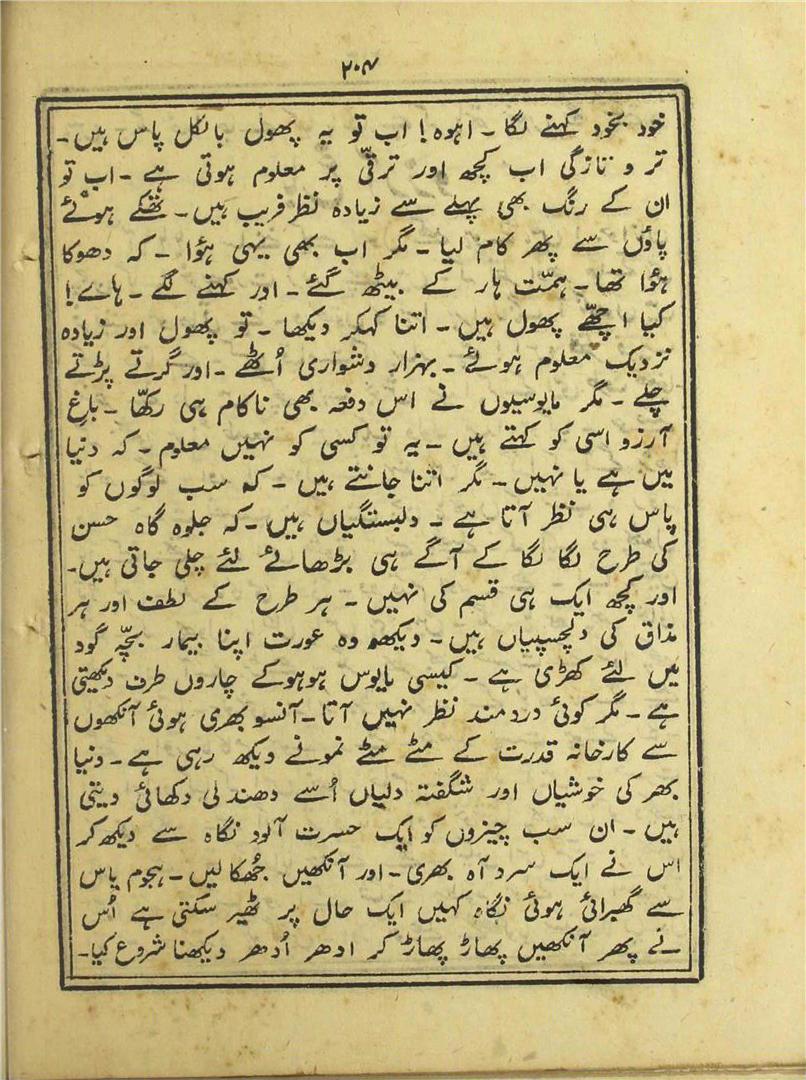 ۲۰۴
خود بخود کہنے لگا ۔ اہوہ! اب تو یہ پھول بالکل پاس ہیں۔
تر و تازگی اب کچھ اور ترقّی پر معلوم ہوتی ہے ۔ اب تو
ان کے رنگ بھی پہلے سے زیادہ نظر فریب ہیں۔ تھکے ہوئے
پاؤں سے پھر کام لیا ۔ مگر اب بھی یہی ہؤا ۔ کہ دھوکا
ہؤا تھا۔ ہمّت ہار کے بیٹھ گئے ۔ اور کہنے لگے ۔ ہاے!
کیا اچھّے پھول ہیں ۔ اتنا کہکر دیکھا ۔ تو پھول اور زیادہ
نزدیک معلوم ہوئے ۔ بہزار دشواری اُٹھے ۔ اور گرتے پڑتے
چلے ۔ مگر مایوسیوں نے اس دفعہ بھی ناکام ہی رکھّا ۔ باغِ
آرزو اسی کو کہتے ہیں ۔ یہ تو کسی کو نہیں معلوم ۔ کہ دنیا
میں ہے یا نہیں ۔ مگر اتنا جانتے ہیں ۔ کہ سب لوگوں کو
پاس ہی نظر آتا ہے ۔ دلبستگیاں ہیں ۔ کہ جلوہ گاہ حسن
کی طرح لگا لگا کے آگے ہی بڑھائے لئے چلی جاتی ہیں۔
اور کچھ ایک ہی قسم کی نہیں ۔ ہر طرح کے لطف اور ہر
مذاق کی دلچسپیاں ہیں ۔ دیکھو وہ عورت اپنا بیمار بچّہ گود
میں لئے کھڑی ہے ۔ کیسی مایوس ہوہوکے چاروں طرف دیکھتی
ہے ۔ مگر کوئی دردمند نظر نہیں آتا ۔ آنسو بھری ہوئی آنکھوں
سے کارخانہ قدرت کے مٹے مٹے نمونے دیکھ رہی ہے ۔ دنیا
بھر کی خوشیاں اور شگفتہ دلیاں اُسے دھندلی دکھائی دیتی
ہیں ۔ ان سب چیزوں کو ایک حسرت آلود نگاہ سے دیکھ کر
اس نے ایک سرد آہ بھری ۔ اور آنکھیں جُھکا لیں ۔ ہجوم یاس
سے گھبرائی ہوئی نگاہ کہیں ایک حال پر ٹھیر سکتی ہے اُس
نے پھر آنکھیں پھاڑ پھاڑ کر ادھر اُدھر دیکھنا شروع کیا۔